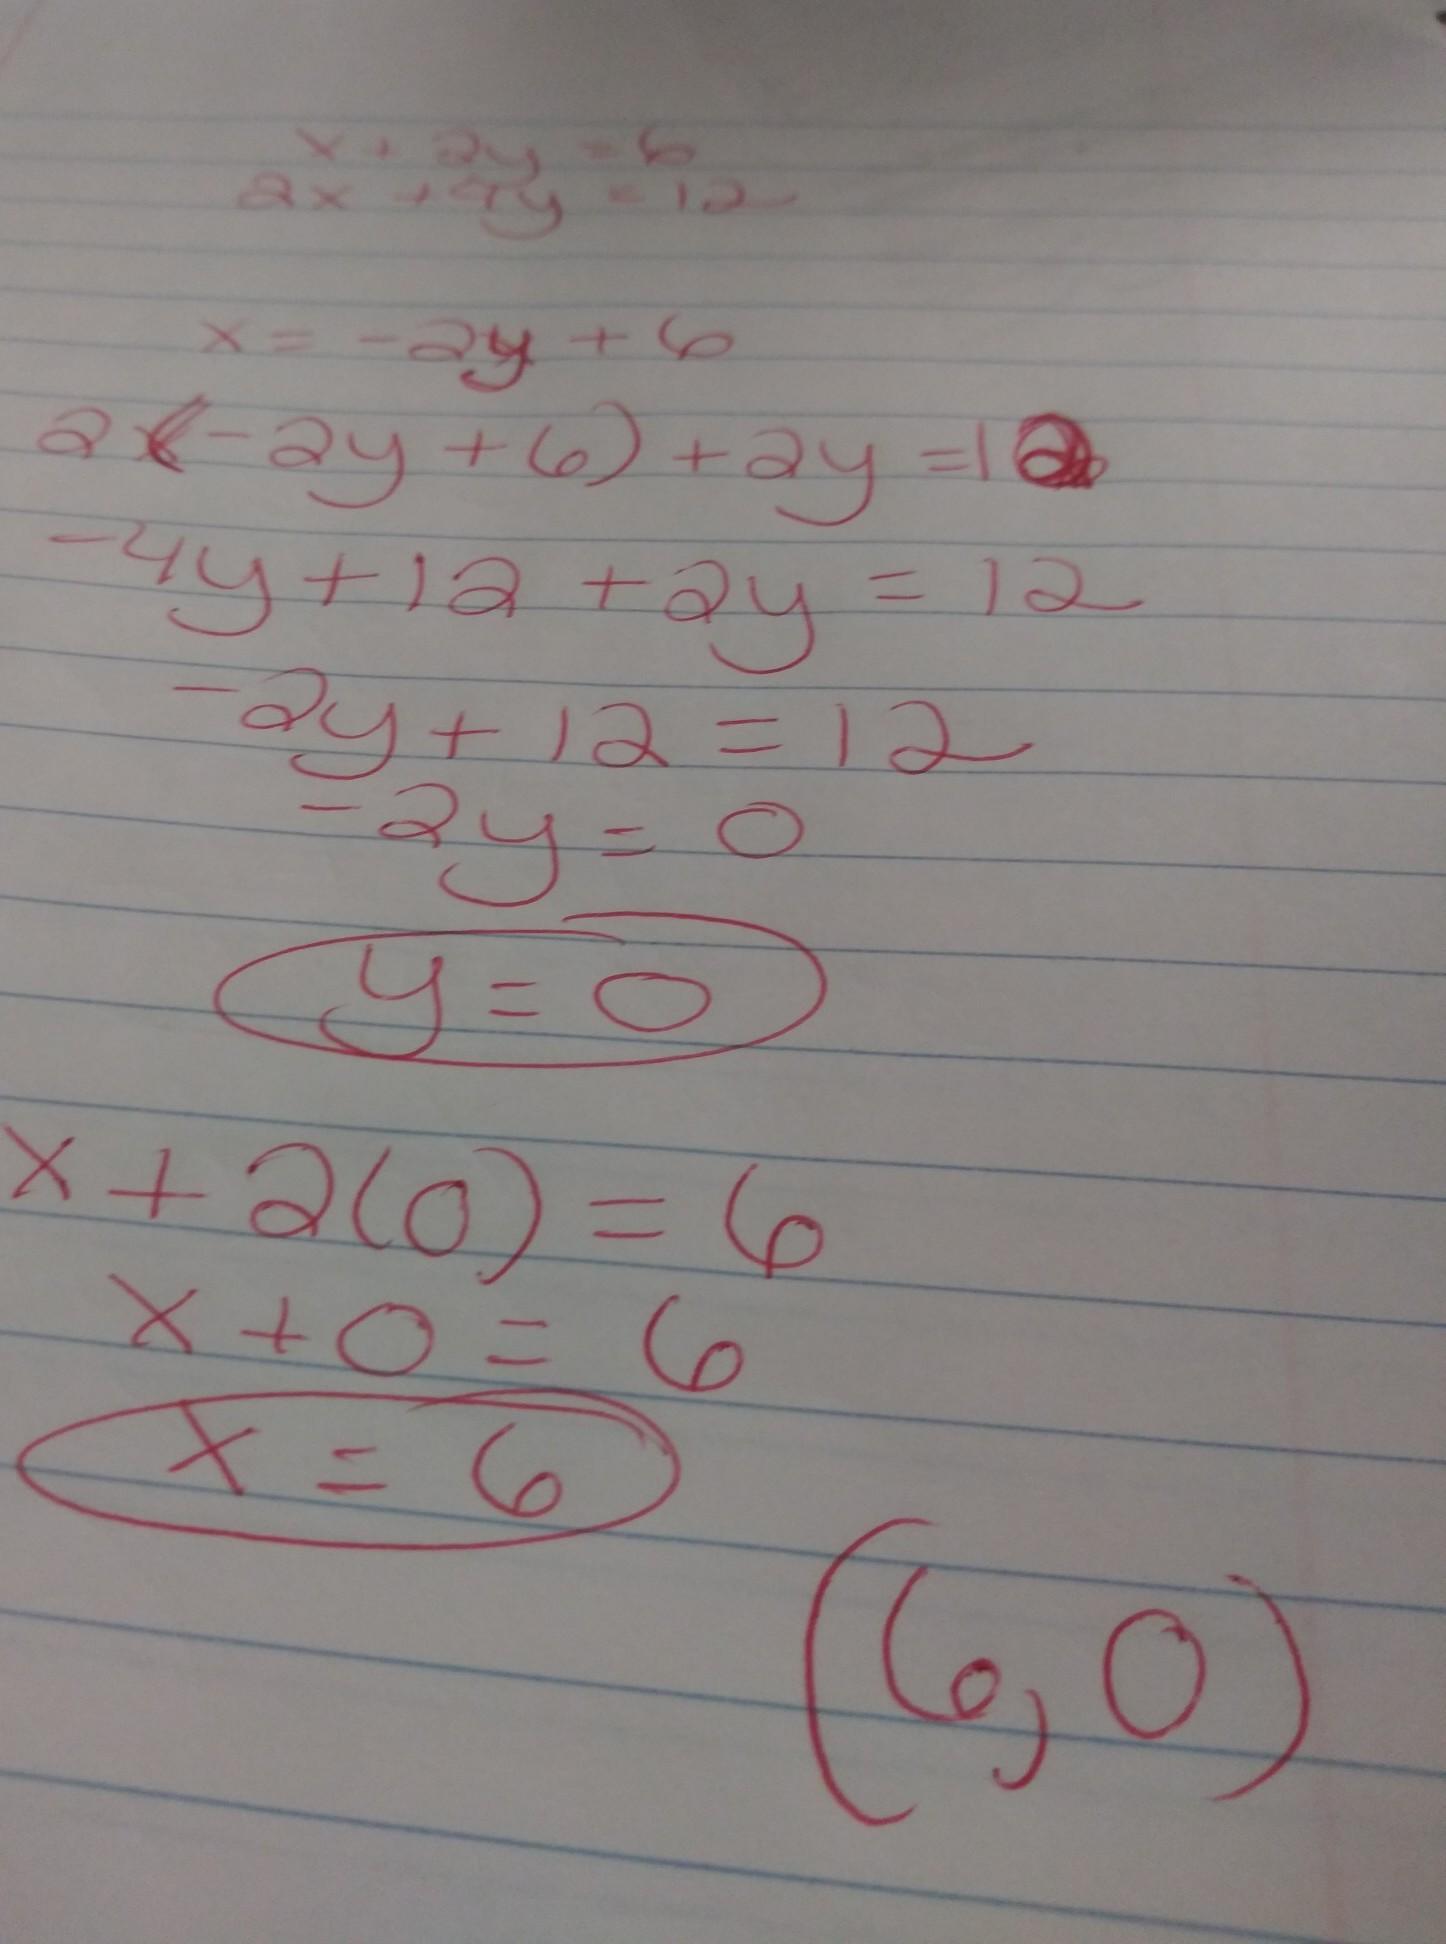 x + 2y = 6
2x + 4y = 12
x = -2y + 6
2(-2y + 6) + 2y = 12
-4y + 12 + 2y = 12
-2y + 12 = 12
-2y = 0
y = 0
x + 2(0) = 6
x + 0 = 6
x = 6
(6, 0)